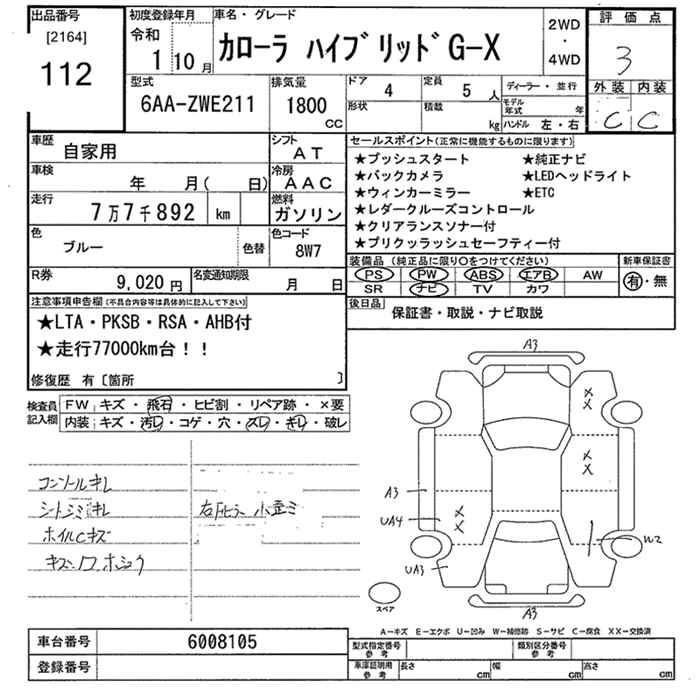 出品番号
[2164]
112
初度登録年月
令和
1 10 月
車名・グレード
カローラ ハイブリッド G-X
2WD
・
4WD
評価点
3
外装 内装
C C
型式
6AA-ZWE211
排気量
1800
CC
ドア
4
定員
5 人
形状
積載
kg
ディーラー・並行
モデル年式 年
ハンドル 左・右
車歴
自家用
シフト
AT
車検
年 月( 日)
冷房
AAC
走行
7万7千892 km
燃料
ガソリン
色
ブルー
色替
色コード
8W7
R券
9,020 円
名変通知期限
月 日
セールスポイント(正常に機能するものに限ります)
★プッシュスタート ★純正ナビ
★バックカメラ ★LEDヘッドライト
★ウィンカーミラー ★ETC
★レダークルーズコントロール
★クリアランスソナー付
★プリクッラッシュセーフティー付
装備品(純正品に限り○をつけてください)
新車保証書
PS PW ABS エアB AW
SR ナビ TV カワ
有・無
後日品
保証書・取説・ナビ取説
注意事項申告欄(不具合内容等は具体的に記入して下さい)
★LTA・PKSB・RSA・AHB付
★走行77000km台！！
修復歴 有〔箇所 〕
検査員記入欄
FW キズ・飛石・ヒビ割・リペア跡・×要
内装 キズ・汚レ・コゲ・穴・ズレ・キレ・破レ
コンソールキレ
シートシミキレ
ホイルCキズ
右F
小歪ミ
A3
A3
UA4
UA3
W2
A3
XX
XX
XX
スペア
A－キズ E－エクボ U－凹み W－補修跡 S－サビ C－腐食 XX－交換済
車台番号
6008105
登録番号
型式指定番号
参考
類別区分番号
参考
車庫証明用
参考
長さ cm
幅 cm
高さ cm